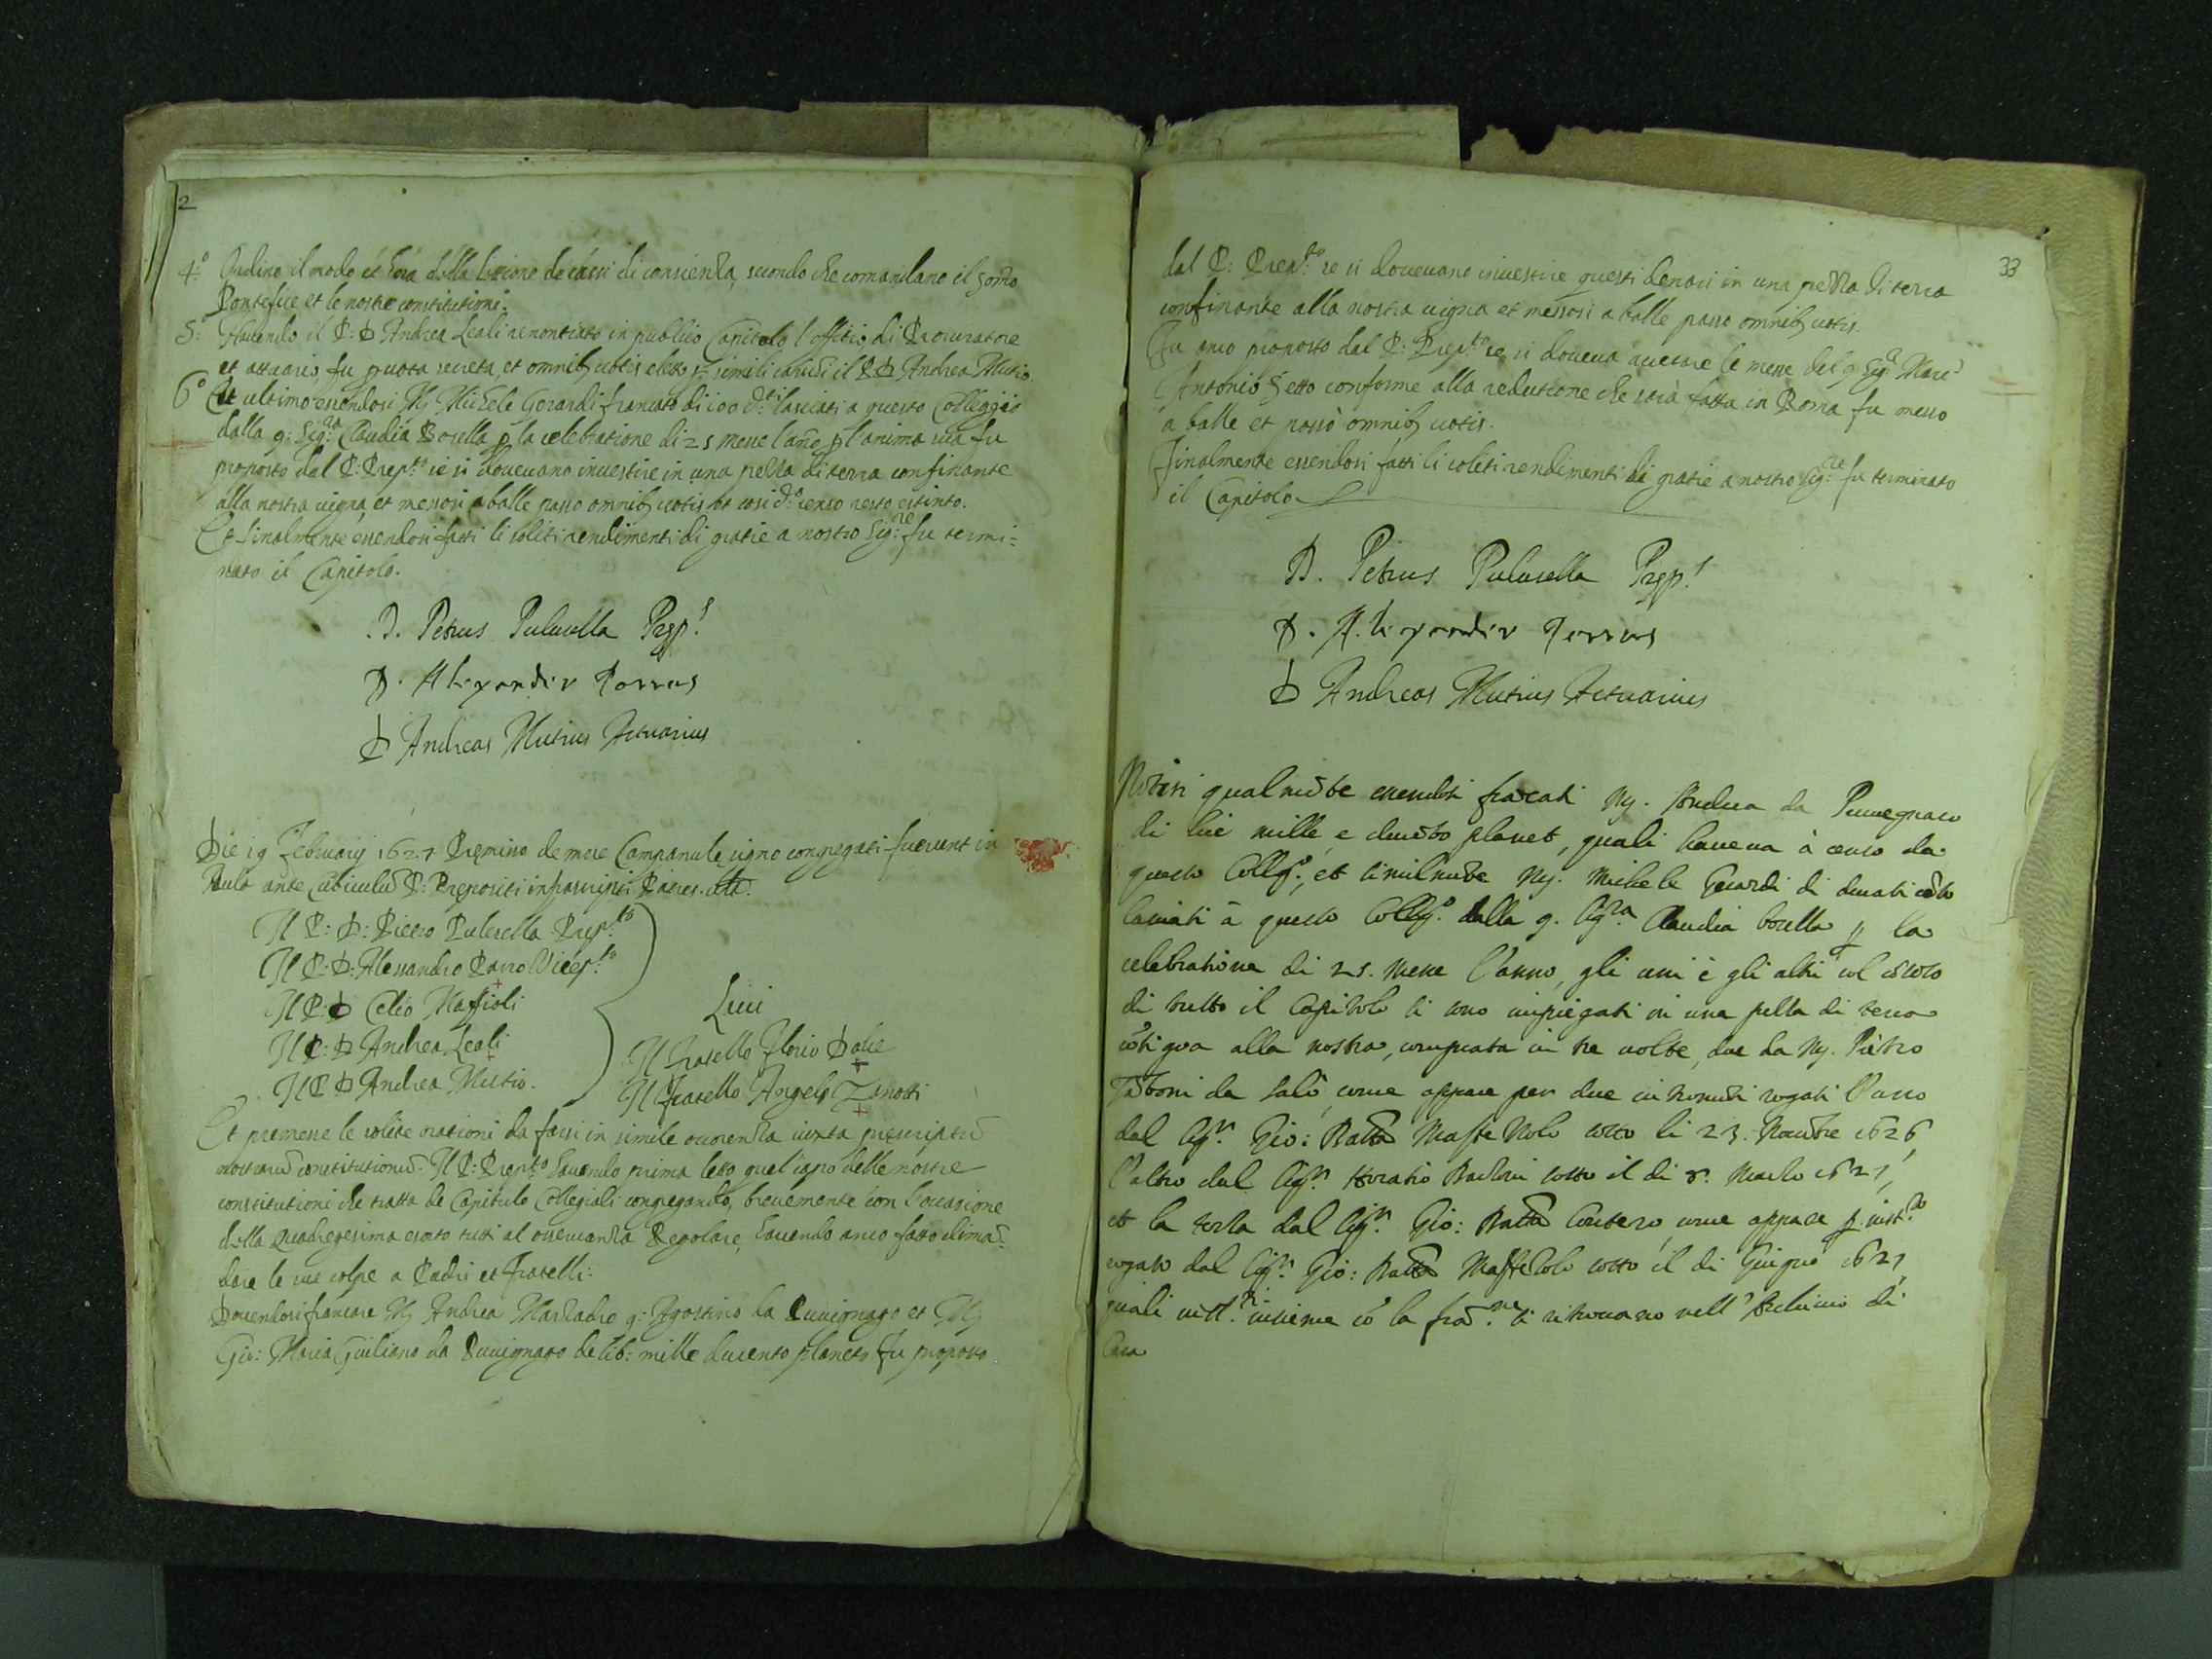 2
4.o Ordino il modo et hora della lettione de cassi di conscienza, secondo che comandano il Som̃o
Pontefice et le nostre constitutioni.
5.o Havendo il P: D Andrea Leali renontiato in publico Capitolo l'offitio di Procuratore
et attuario, fu p uota secreta, et omnib9 uotis eletto p simili carichi il P D Andrea Mutio.
6o Et ultimo essendosi Mr Michele Gerardi francato di 100 d.ti lasciati a questo Colleggio
dalla q: Sig.ra Claudia Bosella p la celebratione di 25 messe l'año p l'anima sua fu
proposto dal P: Prep.to se si douevano investire in una pezza di terra confinante
alla nostra uigna, et messosi a balle passo omnib9 uotis et cosi d.o censo resto estinto.
Et finalmente essendosi fatti li soliti rendimenti di gratie a nostro Sig.re fu termi=
nato il Capitolo.
D. Petrus Pulusella Prep.s
D. Alexander Porrus
D Andreas Mutius Actuarius
Die 19 Februarij 1627 Premisso de more Campanule signo congregati fuerunt in
Aula ante Cubiculũ P: Prepositi infrascripti Patres.
Il P: D: Pietro Pulusella Prep.to
Il P: D: Alessandro Porro Vicep.to
Il P: D Celio Maffioli
Il P: D Andrea Leali
Il P D Andrea Mutio.
Laici
Il Fratello Florio Dolie
Il Fratello Angelo Zinotti
Et premesse le solite orationi da farsi in simile occorenza iuxta prescriptũ
nostrarũ constitutionũ. Il P: Prep.to havendo prima letto quel capo delle nostre
constitutioni che tratta de Capitulo Collegiali congregando, brevemente con l'occasione
della Quadregesima esorto tutti al osseruanza Regolare, havendo anco fatto diman̄
dare le sue colpe a Padri et Fratelli:
Dovendosi francare Mr Andrea q: Agostino da Puuignago et Mr
Gio: Maria Giuliano da Puuignago de lib: mille ducento planets fu proposto
33
dal P: Prep.to se si douevano investire questi denari in una pezza di terra
confinante alla nostra uigna et messosi a balle passo omnib9 uotis.
Fu anco proposto dal P: Prep.to se si doueva acetare le messe del q Sig.r Marc'
Antonio Setto conforme alla redutione che sarà fatta in Roma fu messo
a balle et passò omnib9 uotis.
Finalmente essendosi fatti li soliti rendimenti di gratie a nostro Sig.re fu terminato
il Capitolo
D. Petrus Pulusella Prep.s
D. Alexander Porrus
D Andreas Mutius Actuarius
Notisi qualmẽte essendosi francati Mr. Andrea da Puuegnaco
di lire mille, e ducẽto planet, quali haueua à censo da
questo Coll.o, et similmẽte Mr. Michele Gerardi di ducati cẽto
lasciati à questo Coll.o dalla q. Sig.ra Claudia bosella p la
celebratione di 25. messe l'anno, gli uni è gli altri col cõsenso
di tutto il Capitolo si sono impiegati in una pezza di terra
cõtigua alla nostra, comprata in tre uolte, due da Mr. Pietro
da Salò, come appare per due instromẽti rogati l'uno
dal Sig.r Gio: Batta sotto li 23. Nouẽbre 1626
l'altro dal Sig.r Horatio sotto il di 8. Marzo 1627,
et la terza dal Sig.r Gio: Batta, come appare p inst.to
rogato dal Sig.r Gio: Batta sotto il di Giugno 1627,
quali inst.ti insieme cõ la si ritrouano nell'Archiuio di
Casa